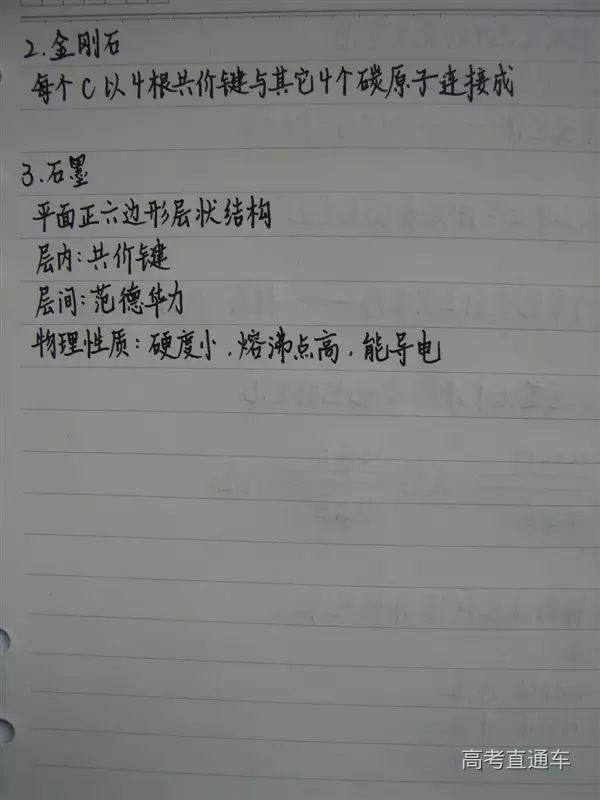 2.金刚石
每个C以4根共价键与其它4个碳原子连接成
3.石墨
平面正六边形层状结构
层内:共价键
层间:范德华力
物理性质:硬度小、熔沸点高、能导电
高考直通车